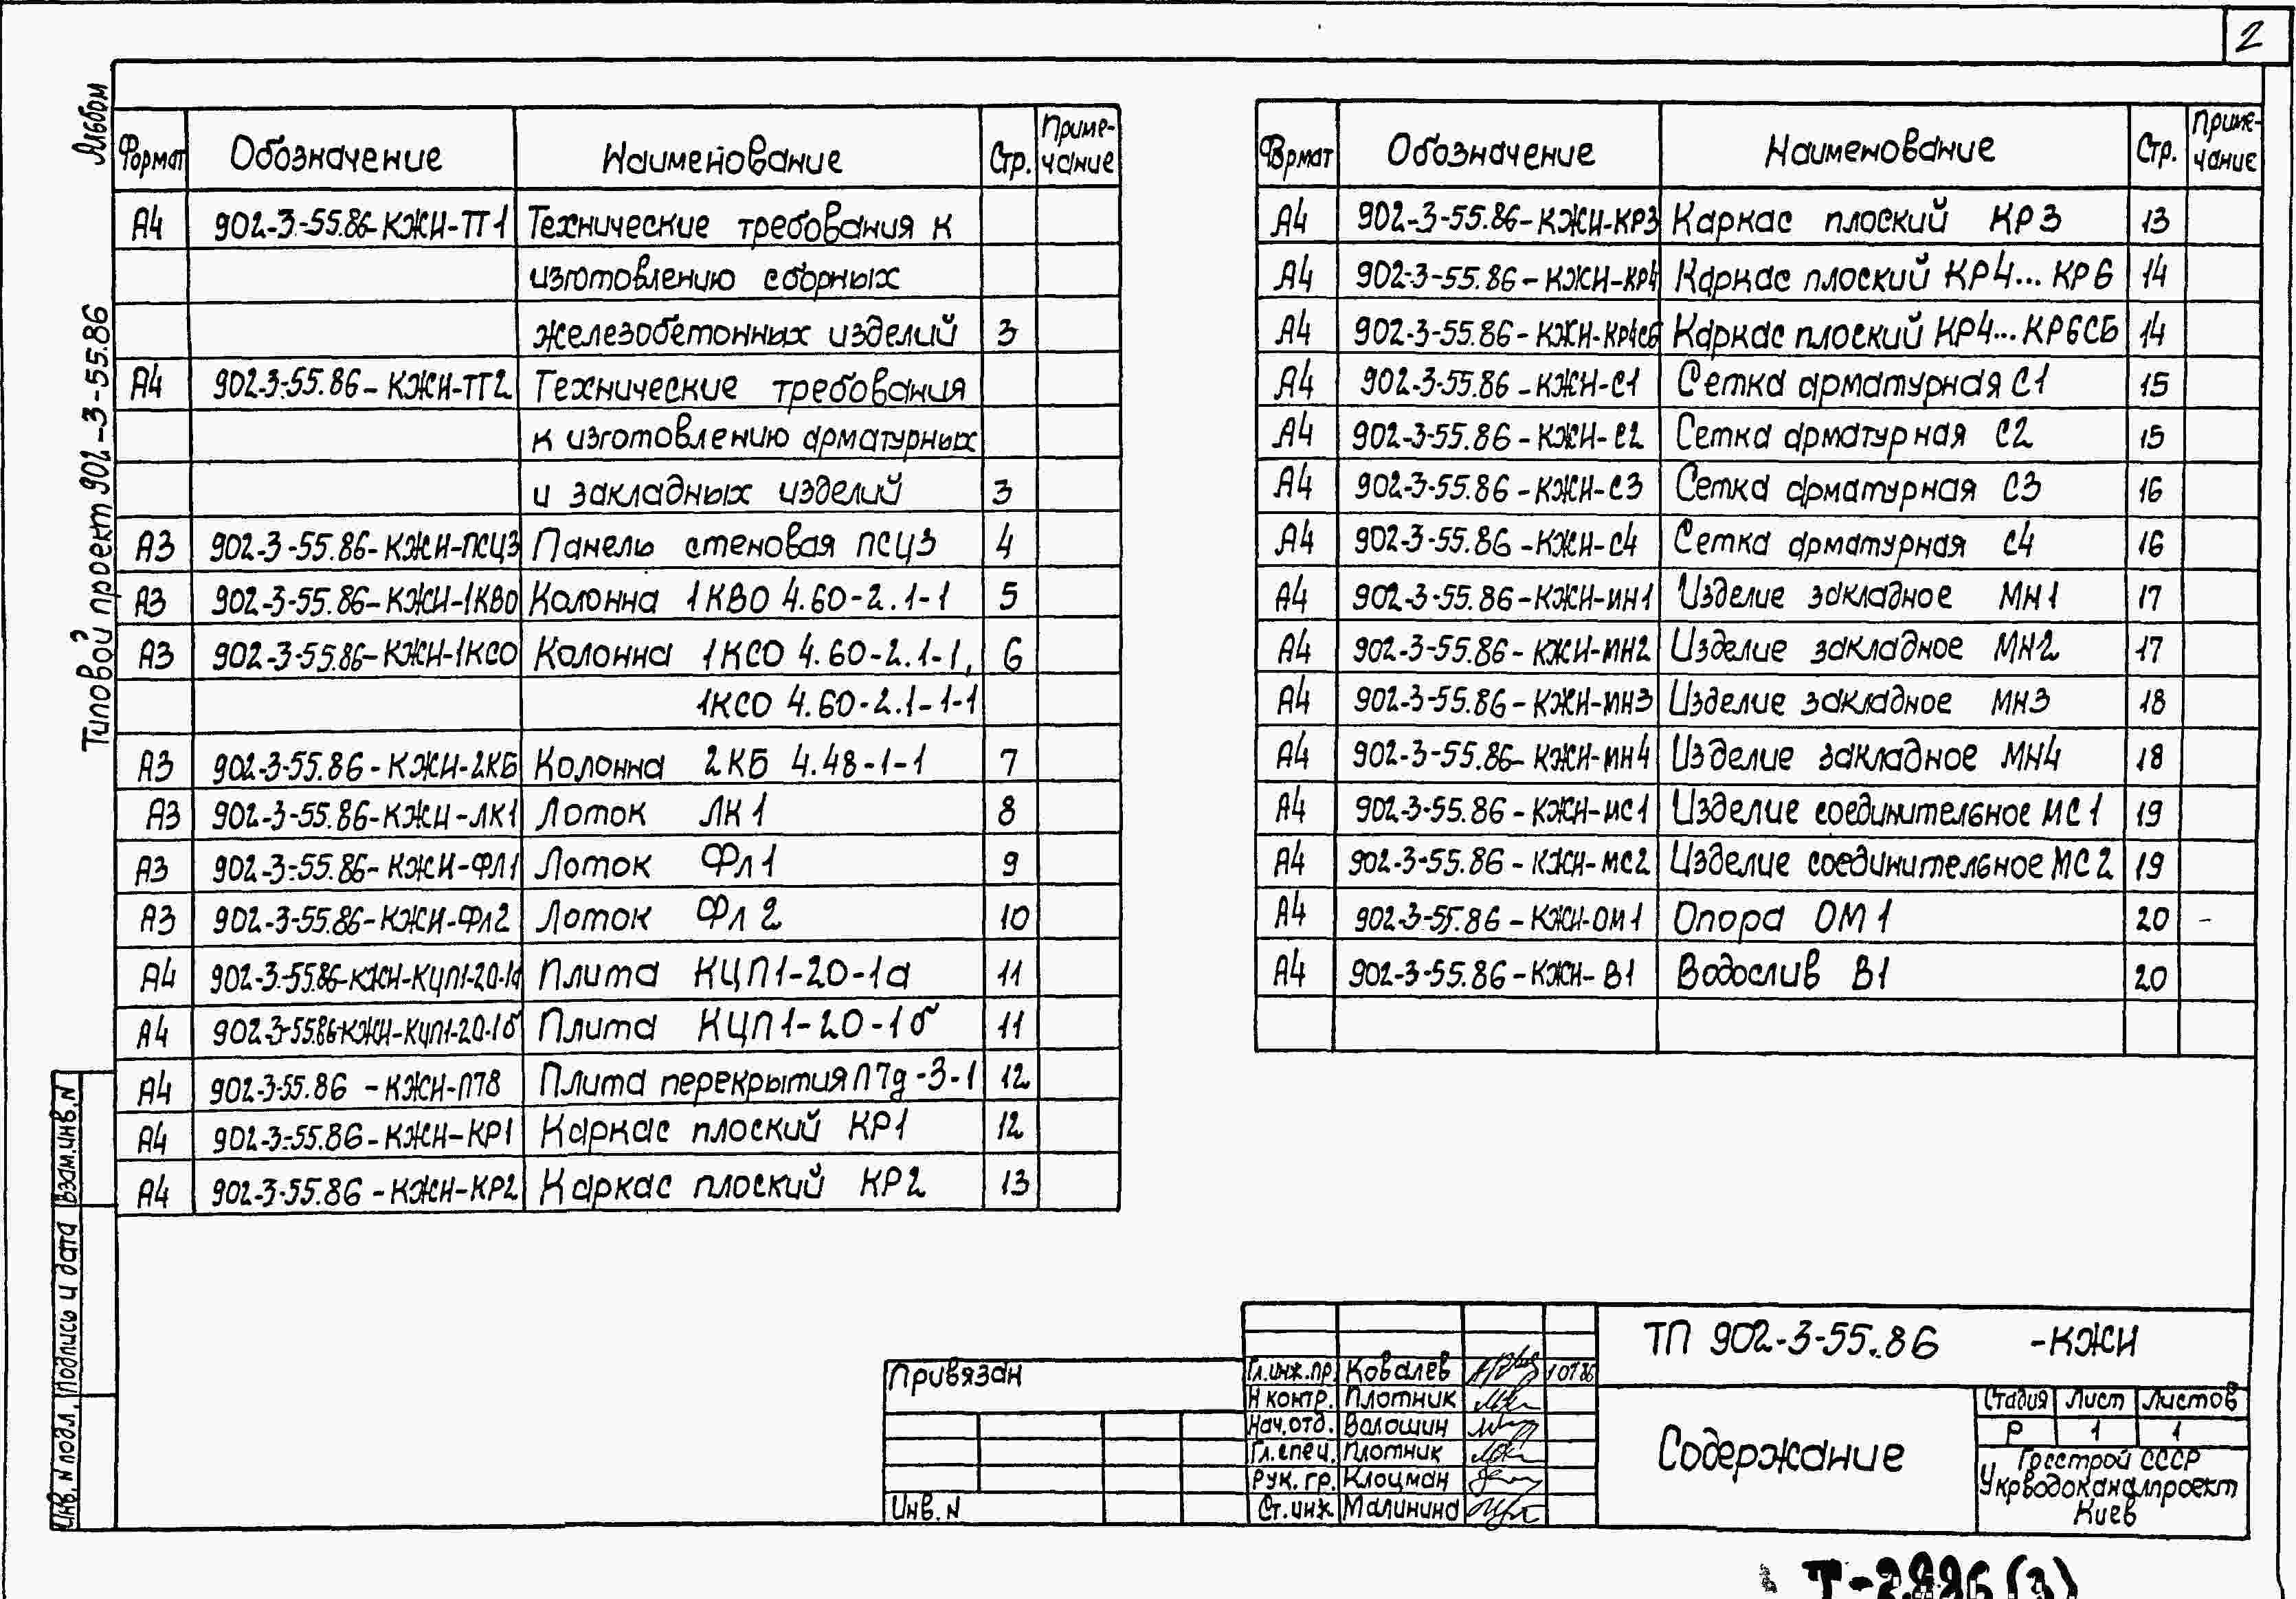 2
Альбом
Типовой проект 902-3-55.86
Формат Обозначение Наименование Стр. Приме-
чание
А4 902-3-55.86-КЖИ-ТТ1 Технические требования к
изготовлению сборных
железобетонных изделий 3
А4 902-3-55.86-КЖИ-ТТ2 Технические требования
к изготовлению арматурных
и закладных изделий 3
А3 902-3-55.86-КЖИ-ПСЦ3 Панель стеновая ПСЦ3 4
А3 902-3-55.86-КЖИ-1КВО Колонна 1КВО 4.60-2.1-1 5
А3 902-3-55.86-КЖИ-1КСО Колонна 1КСО 4.60-2.1-1, 6
1КСО 4.60-2.1-1-1
А3 902-3-55.86-КЖИ-2КБ Колонна 2КБ 4.48-1-1 7
А3 902-3-55.86-КЖИ-ЛК1 Лоток ЛК1 8
А3 902-3-55.86-КЖИ-ФЛ1 Лоток Фл1 9
А3 902-3-55.86-КЖИ-Фл2 Лоток Фл2 10
А4 902-3-55.86-КЖИ-КЦП1-20-1а Плита КЦП1-20-1а 11
А4 902-3-55.86-КЖИ-КЦП1-20-1б Плита КЦП1-20-1б 11
А4 902-3-55.86 -КЖИ-П78 Плита перекрытия П7д-3-1 12
А4 902-3-55.86-КЖИ-КР1 Каркас плоский КР1 12
А4 902-3-55.86-КЖИ-КР2 Каркас плоский КР2 13
Формат Обозначение Наименование Стр. Приме-
чание
А4 902-3-55.86-КЖИ-КР3 Каркас плоский КР3 13
А4 902-3-55.86-КЖИ-КР4 Каркас плоский КР4...КР6 14
А4 902-3-55.86-КЖИ-КР4СБ Каркас плоский КР4...КР6СБ 14
А4 902-3-55.86-КЖИ-С1 Сетка арматурная С1 15
А4 902-3-55.86-КЖИ-С2 Сетка арматурная С2 15
А4 902-3-55.86-КЖИ-С3 Сетка арматурная С3 16
А4 902-3-55.86-КЖИ-С4 Сетка арматурная С4 16
А4 902-3-55.86-КЖИ-МН1 Изделие закладное МН1 17
А4 902-3-55.86-КЖИ-МН2 Изделие закладное МН2 17
А4 902-3-55.86-КЖИ-МН3 Изделие закладное МН3 18
А4 902-3-55.86-КЖИ-МН4 Изделие закладное МН4 18
А4 902-3-55.86-КЖИ-МС1 Изделие соединительное МС1 19
А4 902-3-55.86-КЖИ-МС2 Изделие соединительное МС2 19
А4 902-3-55.86-КЖИ-ОМ1 Опора ОМ1 20 -
А4 902-3-55.86-КЖИ-В1 Водослив В1 20
Взам.инв.N
Подпись и дата
Инв.N подл.
Привязан
Инв.N
Гл.инж.пр. Ковалев
Н контр. Плотник
Нач.отд. Валошин
Гл.спец. Плотник
Рук.гр. Клоцман
Ст.инж Малинина
ТП 902-3-55.86 -КЖИ
Содержание
Стадия Лист Листов
Р 1 1
Госстрой СССР
Укрводоканалпроект
Киев